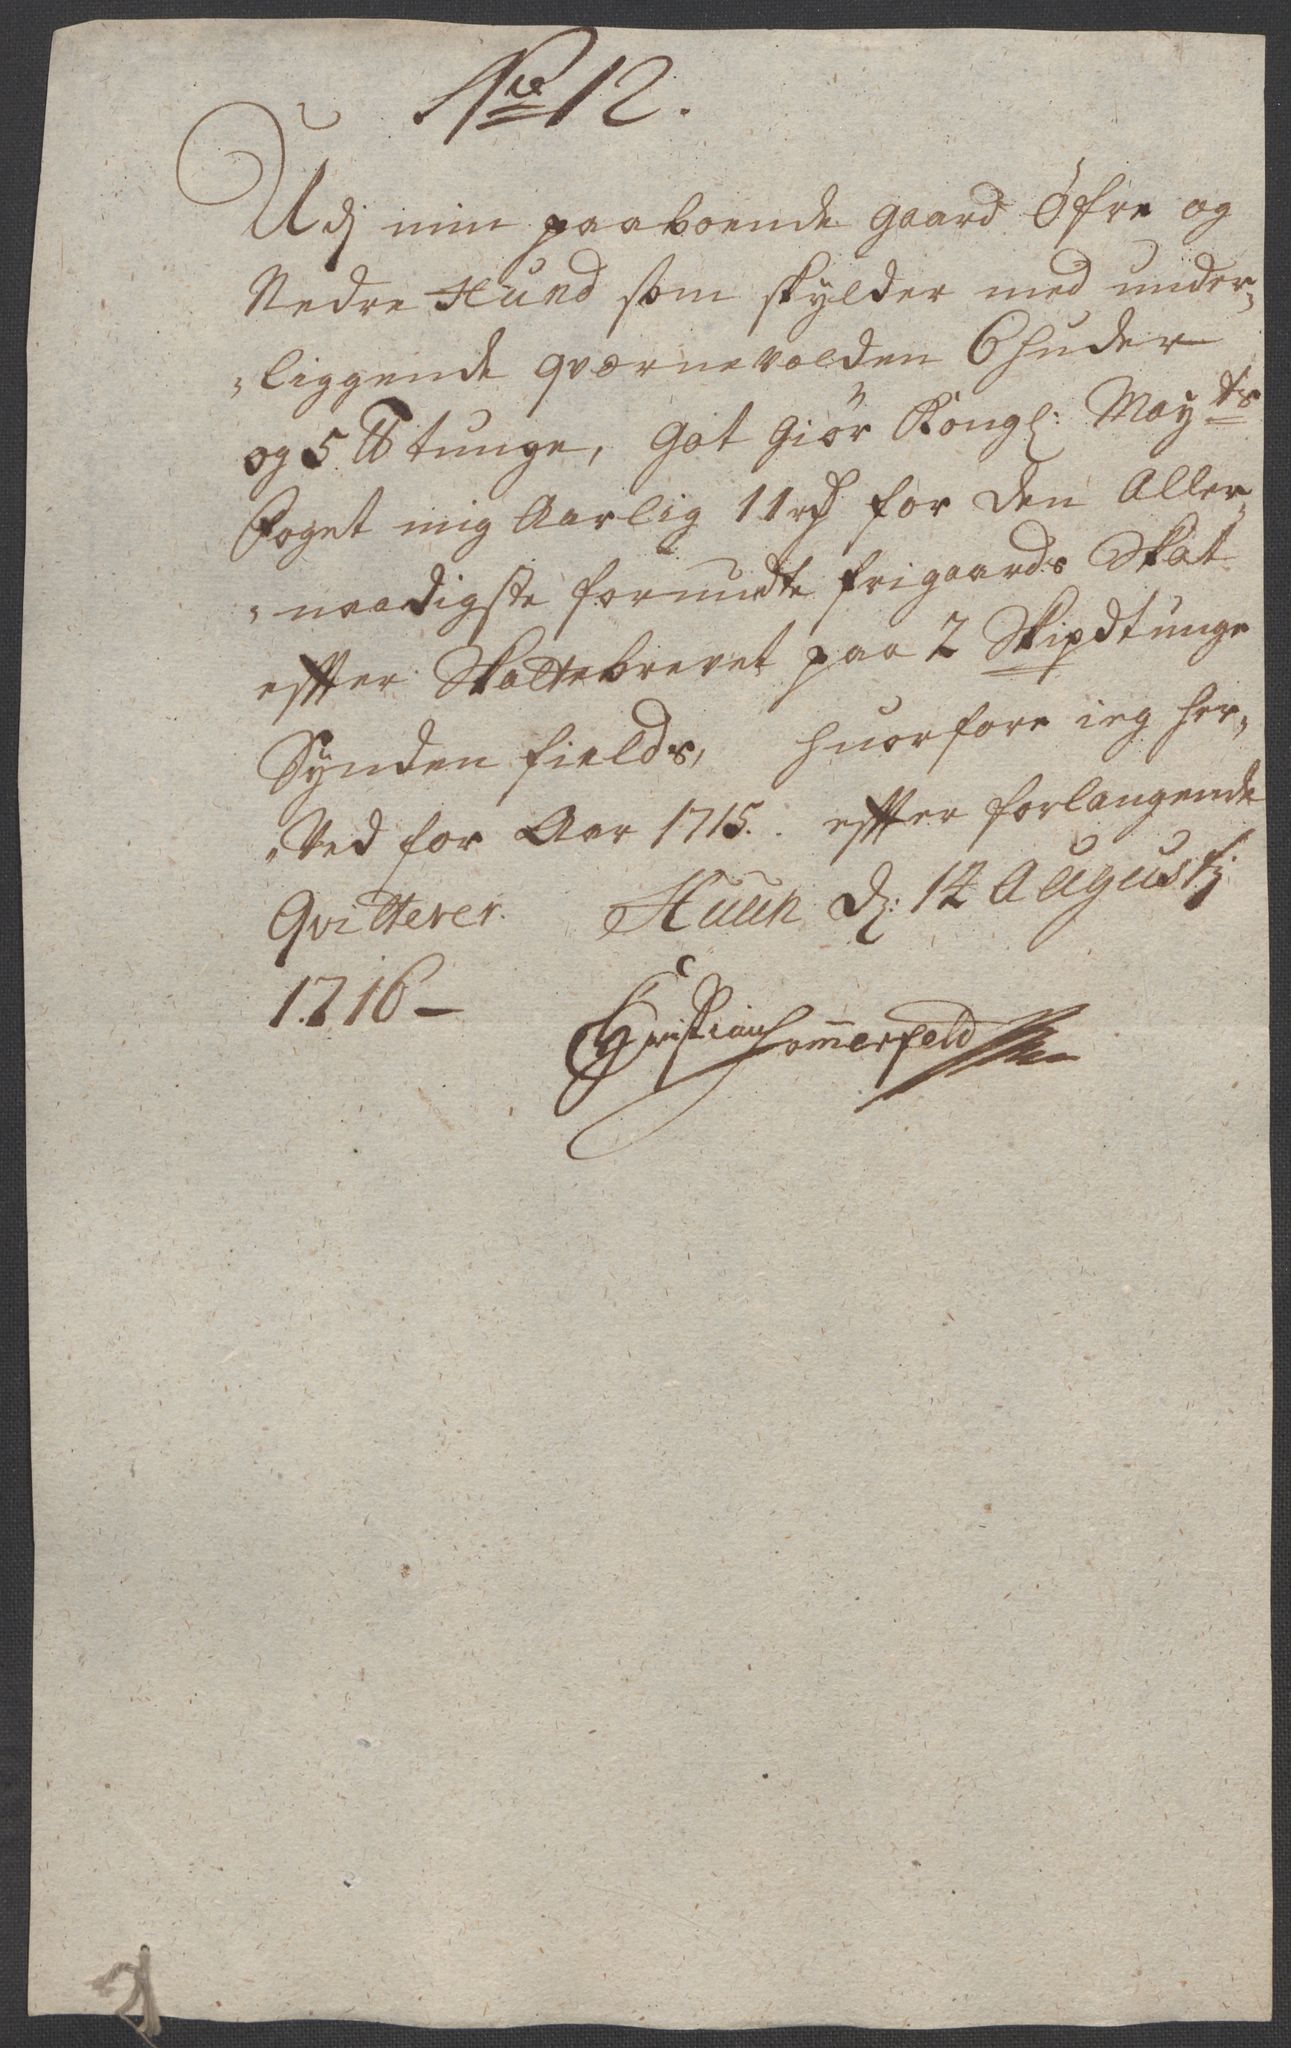 No 12.
Udj min paaboende gaard Öfre og
Nedre Hund som skylder med under-
-liggende qværnevolden 6 huder
og 5 ℔ tunge, Got Giör Kongl: Mayts
Foget mig Aarlig 11 rd for den Aller-
-naadigste forundte frigaards Skat
effter Skattebrevet paa 2 Skipdtunge
Synden fields, huorfore ieg her-
-Ved for Aar 1715. effter forlangende
Qvitterer. Huun d: 14 Augustj
1716 -
Christian Sommerfeld